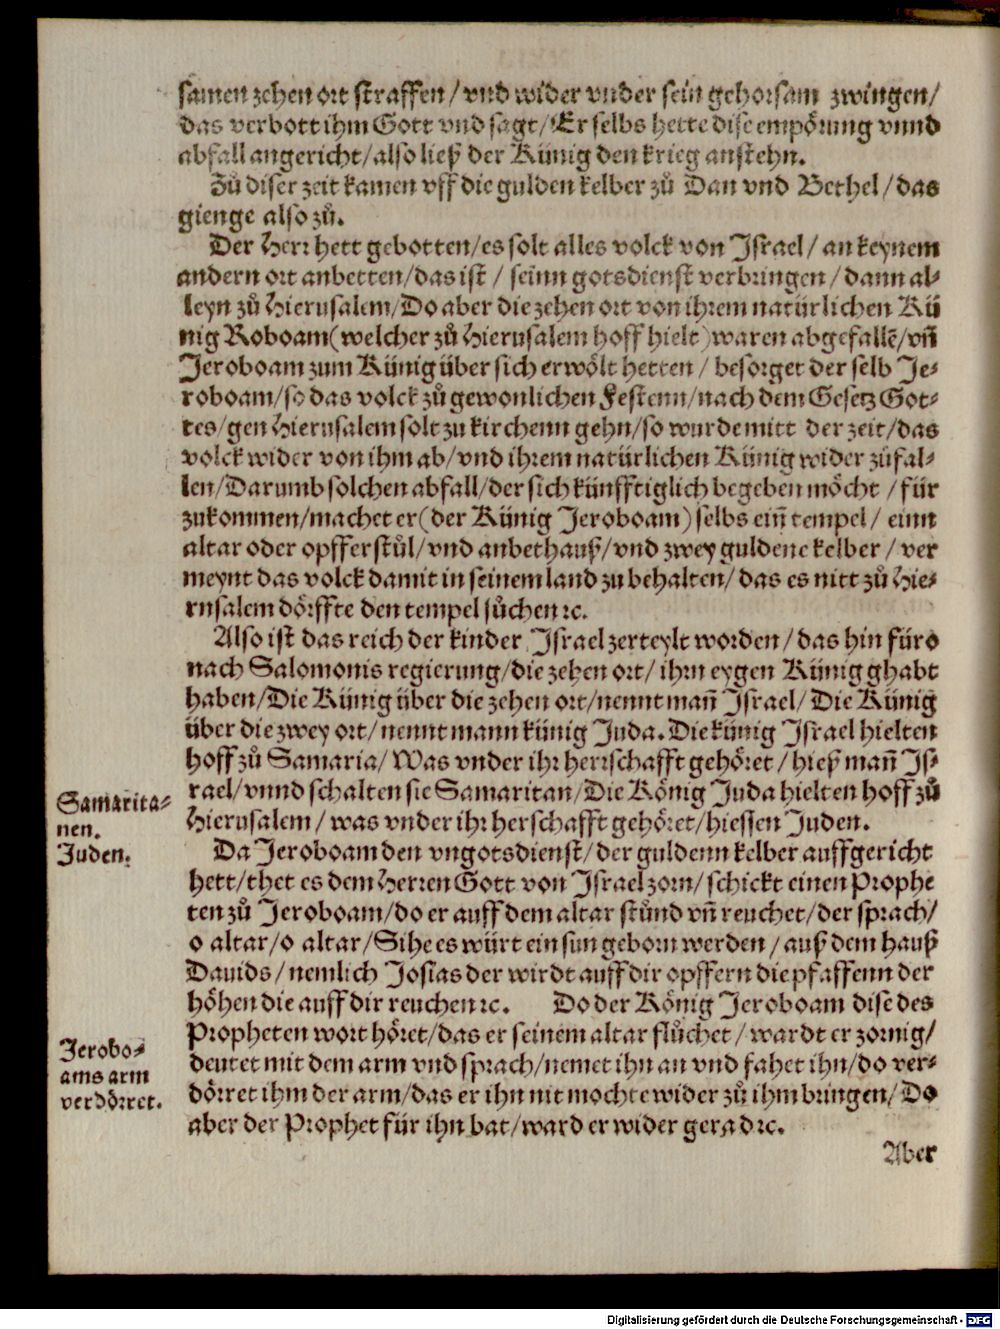 samen zehen ort straffen / vnd wider vnder sein gehorsam zwingen /
das verbott ihm Gott vnd sagt / Er selbs hette dise empörung vnnd
abfall angericht / also ließ der Künig den krieg anstehn.
Zů diser zeit kamen vff die gulden kelber zů Dan vnd Bethel / das
gienge also zů.
Der Herr hett gebotten / es solt alles volck von Israel / an keynem
andern ort anbetten / das ist / seinn gotsdienst verbringen / dann al-
leyn zů Hierusalem / Do aber die zehen ort von ihrem natürlichen Kü
nig Roboam (welcher zů Hierusalem hoff hielt) waren abgefallē / vn̄
Jeroboam zum Künig über sich erwölt hetten / besorget der selb Je-
roboam / so das volck zů gewonlichen Festenn / nach dem Gesetz Got-
tes / gen Hierusalem solt zu kirchenn gehn / so wurde mitt der zeit / das
volck wider von ihm ab / vnd ihrem natürlichen Künig wider zůfal-
len / Darumb solchen abfall / der sich künfftiglich begeben möcht / für
zukommen / machet er (der Künig Jeroboam) selbs ein̄ tempel / einn
altar oder opfferstůl / vnd anbethauß / vnd zwey guldene kelber / ver
meynt das volck damit in seinem land zu behalten / das es nitt zů Hie-
rusalem dörffte den tempel sůchen ꝛc.
Also ist das reich der kinder Israel zerteylt worden / das hin füro
nach Salomonis regierung / die zehen ort / ihrn eygen Künig ghabt
haben / Die Künig über die zehen ort / nennt man̄ Israel / Die Künig
über die zwey ort / nennt mann künig Juda. Die künig Israel hielten
hoff zů Samaria / Was vnder ihr herrschafft gehöret / hieß man̄ Is-
rael / vnnd schalten sie Samaritan / Die König Juda hielten hoff zů
Hierusalem / was vnder ihr herschafft gehöret / hiessen Juden.
Samarita-
nen.
Juden.
Da Jeroboam den vngotsdienst / der guldenn kelber auffgericht
hett / thet es dem Herren Gott von Israel zorn / schickt einen Prophe
ten zů Jeroboam / do er auff dem altar stůnd vn̄ reuchet / der sprach /
o altar / o altar / Sihe es würt ein sun geborn werden / auß dem hauß
Dauids / nemlich Josias der wirdt auff dir opffern die pfaffenn der
höhen die auff dir reuchen ꝛc. Do der König Jeroboam dise des
Propheten wort höret / das er seinem altar flůchet / wardt er zornig /
deutet mit dem arm vnd sprach / nemet ihn an vnd fahet ihn / do ver-
dörret ihm der arm / das er ihn nit mochte wider zů ihm bringen / Do
aber der Prophet für ihn bat / ward er wider gerad ꝛc.
Jerobo-
ams arm
verdörret.
Aber
Digitalisierung gefördert durch die Deutsche Forschungsgemeinschaft - DFG